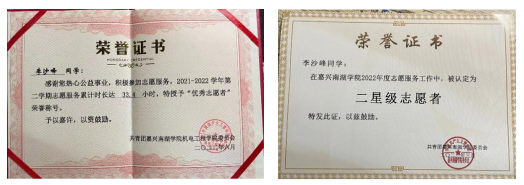 荣誉证书
李沙峰 同学：
感谢您热心公益事业，积极参加志愿服务，2021-2022学年第
二学期志愿服务累计时长达 33.4 小时，特授予“优秀志愿者”
荣誉称号。
予以嘉许，以资鼓励。
共青团嘉兴南湖学院机电工程学院委员会
二〇二二年六月
荣誉证书
李沙峰同学：
在嘉兴南湖学院2022年度志愿服务工作中，被认定为
二星级志愿者
特发此证，以兹鼓励。
共青团嘉兴南湖学院委员会